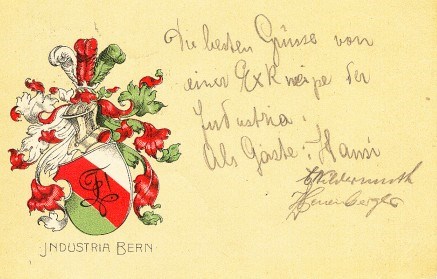 Die besten Grüsse von
einer Exkneipe der
Industria.
Als Gäste: Hansi
INDUSTRIA BERN